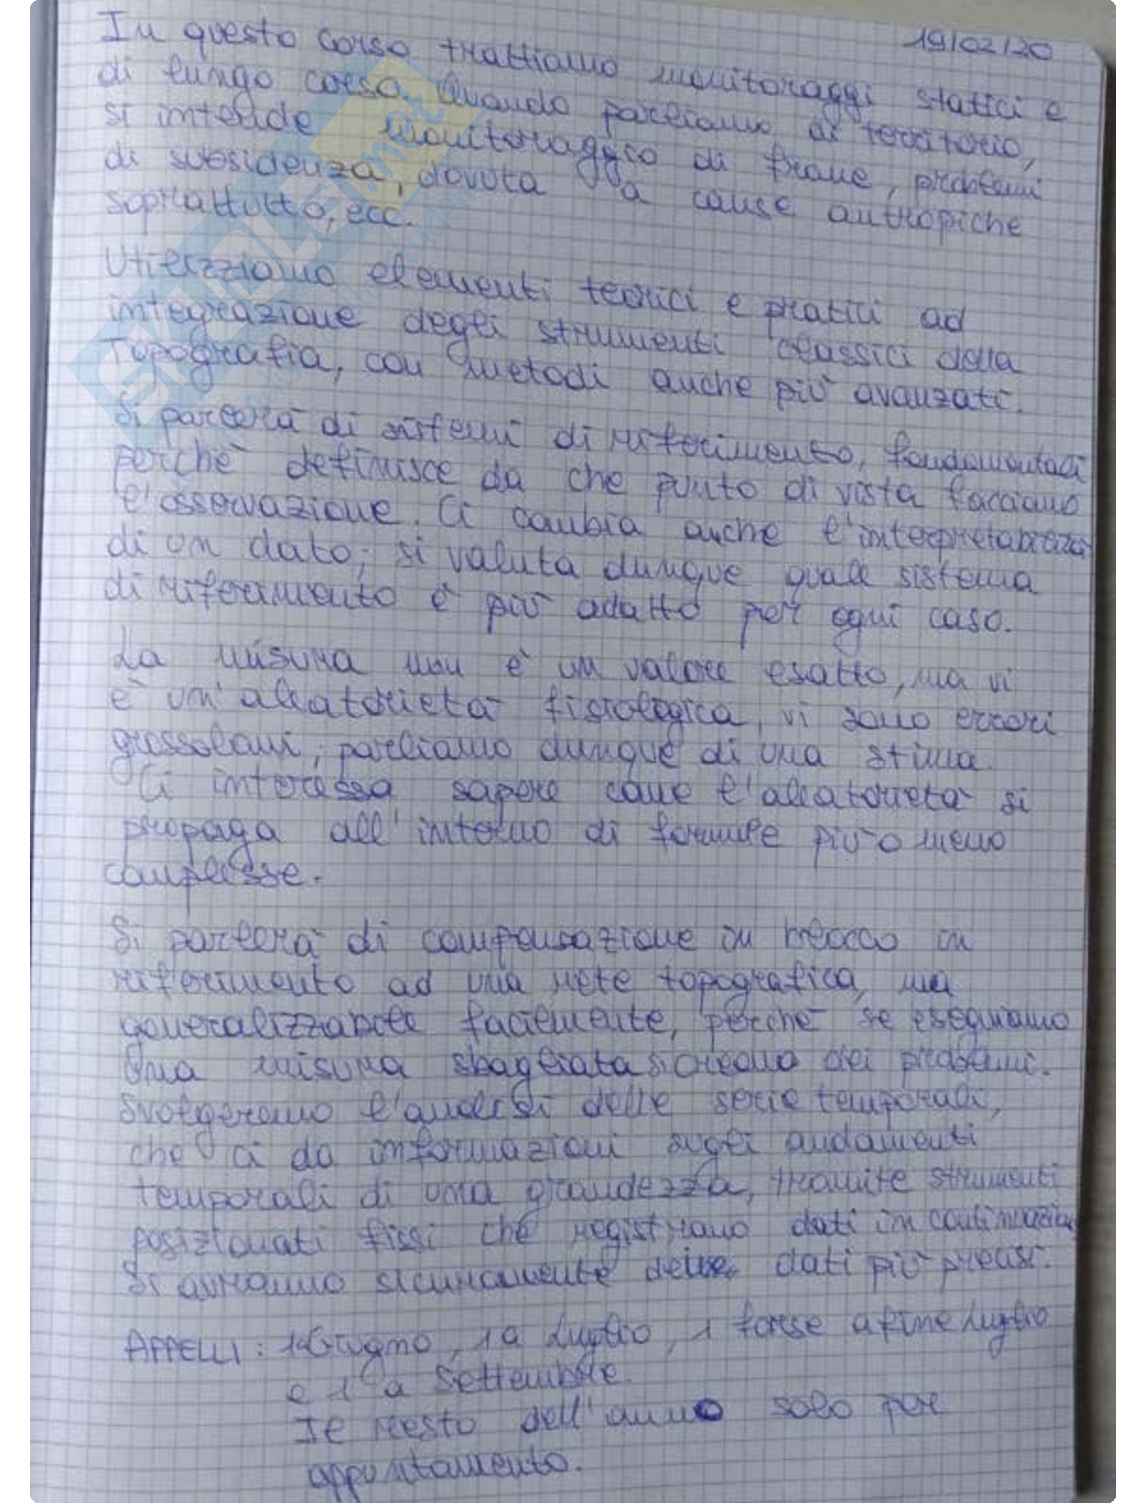 19/02/20
In questo corso trattiamo monitoraggi statici e
di lungo corso. Quando parliamo di territorio,
si intende monitoraggio di frane, problemi
di subsidenza, dovuta a cause antropiche
soprattutto, ecc.
Utilizziamo elementi teorici e pratici ad
integrazione degli strumenti classici della
Topografia, con metodi anche più avanzati.
Si parlerà di sistemi di riferimento, fondamentali
perché definisce da che punto di vista facciamo
l'osservazione. Ci cambia anche l'interpretazione
di un dato; si valuta dunque quale sistema
di riferimento è più adatto per ogni caso.
La misura non è un valore esatto, ma vi
è un'aleatorietà fisiologica, vi sono errori
grossolani; parliamo dunque di una stima.
Ci interessa sapere come l'aleatorietà si
propaga all'interno di formule più o meno
complesse.
Si parlerà di compensazione in blocco in
riferimento ad una rete topografica, ma
generalizzabile facilmente, perché se eseguiamo
una misura sbagliata si creano dei problemi.
Svolgeremo l'analisi delle serie temporali,
che ci da informazioni sugli andamenti
temporali di una grandezza, tramite strumenti
posizionati fissi che registrano dati in continuazione
Si avranno sicuramente dati più precisi.
APPELLI: 1 Giugno, 1 a Luglio, 1 forse a fine Luglio
e 1 a Settembre.
Il resto dell'anno solo per
appuntamento.